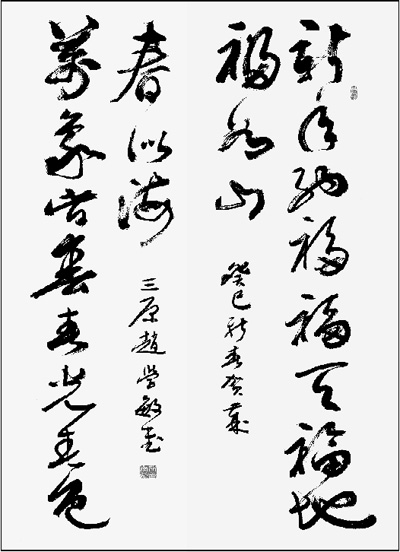 新年納福福天福地
福如山
癸巳新春賀歲
萬象皆春春光春色
春似海
三原趙學敏書